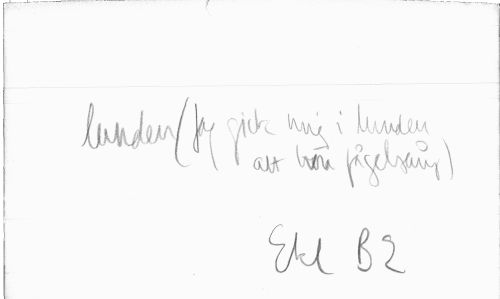 lunden (Jag gick mig i lunden
att höra fågelsång)
Ekl B2